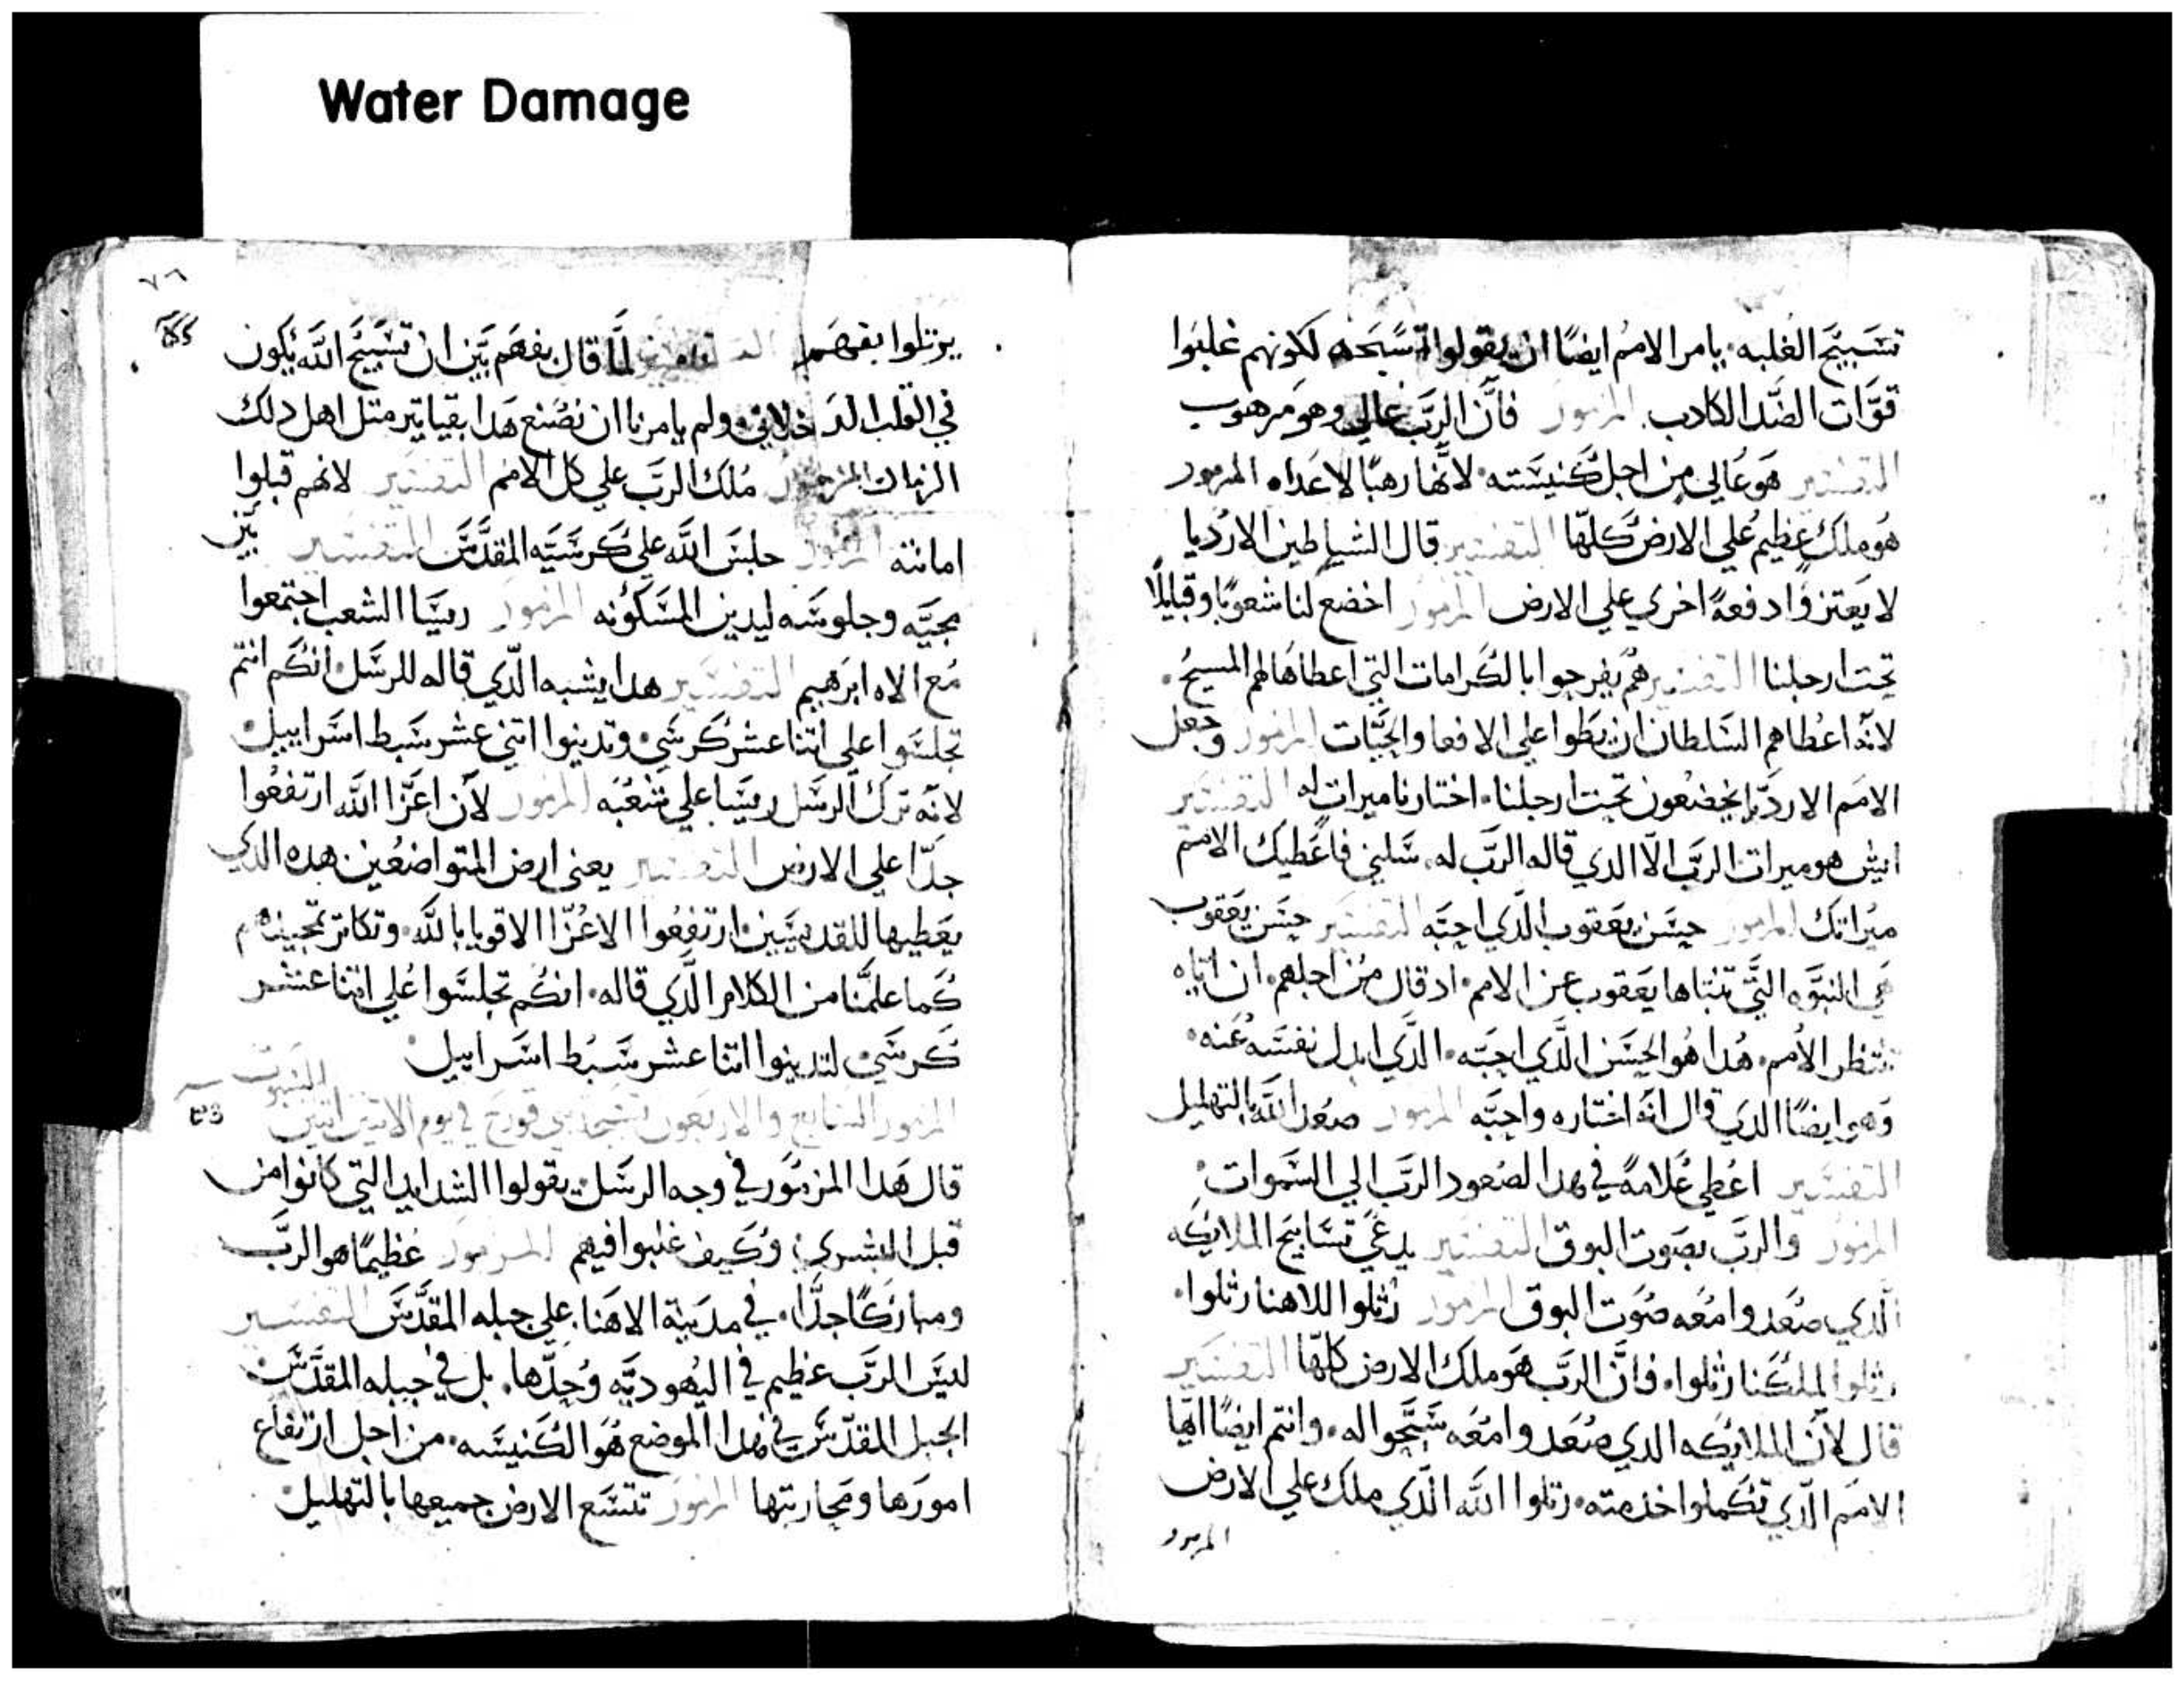 Water Damage
تسبيح الغلبه يامر الامم ايضًا ان يقولوا تسبحه لكونهم غلبوا
قوّات الضّد الكادب. المزمور فانّ الربّ عالي وهو مرهوب
التفسير هو عالي من اجل كنيسته لانّها رهبًا لاعداه المزمور
هو ملك عظيم علي الارض كلّها التفسير قال الشياطين الارديا
لا يعتزوا دفعة اخري علي الارض المزمور اخضع لنا شعوبًا وقبايلًا
تحت ارجلنا التفسير هم يفرحوا بالكرامات التي اعطاها لهم المسيح
لانّه اعطاهم السلطان ان يطوا علي الافعا والحيّات المزمور وجعل
الامم الارديا يخضعون تحت ارجلنا اختارنا ميرات له التفسير
ايش هو ميرات الربّ الّا الدي قاله الربّ له سلني فاعطيك الامم
ميراتك المزمور حسن يعقوب الّدي احبّه التفسير حسن يعقوب
هي النبوّه التّي تنباها يعقوب عن الامم ادقال من اجلهم ان اياه
تنتظر الامم هدا هو الحسن الّدي احبّه الّدي ابدل نفسه عنه
وهو ايضًا الدي قال انّه اختاره واحبّه المزمور صعد اللّه بالتهليل
التفسير اعطي علامةً في هدا لصعود الربّ الي السموات
المزمور والربّ بصوت البوق التفسير يدعي تسابيح الملايكه
الّدي صعدوا معه صوت البوق المزمور رتلوا لالاهنا رتلوا
رتلوا لملكنا رتلوا فانّ الربّ هو ملك الارض كلّها التفسير
قال لانّ الملايكه الدي صعدوا معه سبّحوا له وانتم ايضًا ايّها
الامم الّدي تكملوا خدمته رتلوا اللّه الّدي ملك علي الارض
المزمور
٧٦
يرتلوا بفهم التفسير لمّا قال بفهم بيّن ان تسبيح اللّه يكون
في القلب الداخلاني ولم يامرنا ان نصنع هدا بقياتير متل اهل دلك
الزمان المزمور ملك الربّ علي كل الامم التفسير لانهم قبلوا
امانته المزمور جلس اللّه علي كرسيّه المقدّس التفسير بيّن
مجيّه وجلوسه ليدين المسكونه المزمور ريسا الشعب اجتمعوا
مع الاه ابرهيم التفسير هدا يشبه الّدي قاله للرسل انكم انتم
تجلسوا علي اتنا عشر كرسي وتدينوا اتني عشر سبط اسراييل
لانّه ترك الرسل ريسا علي شعبه المزمور لان اعزّا اللّه ارتفعوا
جدّا علي الارض التفسير يعني ارض المتواضعين هده الدي
يعطيها للقديسين ارتفعوا الاعزّا الاقويا باللّه وتكاتر تمجيدهم
كما علمنا من الكلام الّدي قاله انكم تجلسوا علي اتنا عشر
كرسي لتدينوا اتنا عشر سبط اسراييل
المزمور السابع والاربعون تسبحة بني قورح في يوم الاتنين اتنين السبوت
قال هدا المزمور في وجه الرسل يقولوا الشدايد التي كانوا من
قبل البشري وكيف غلبوا فيهم المزمور عظيمًا هو الربّ
ومباركًا جدًّا في مدينة الاهنا علي جبله المقدّس التفسير
ليس الربّ عظيم في اليهوديّه وحدّها بل في جبله المقدّس
الجبل المقدّس في هدا الموضع هو الكنيسه من اجل ارتفاع
امورها ومحاربتها المزمور تتسع الارض جميعها بالتهليل